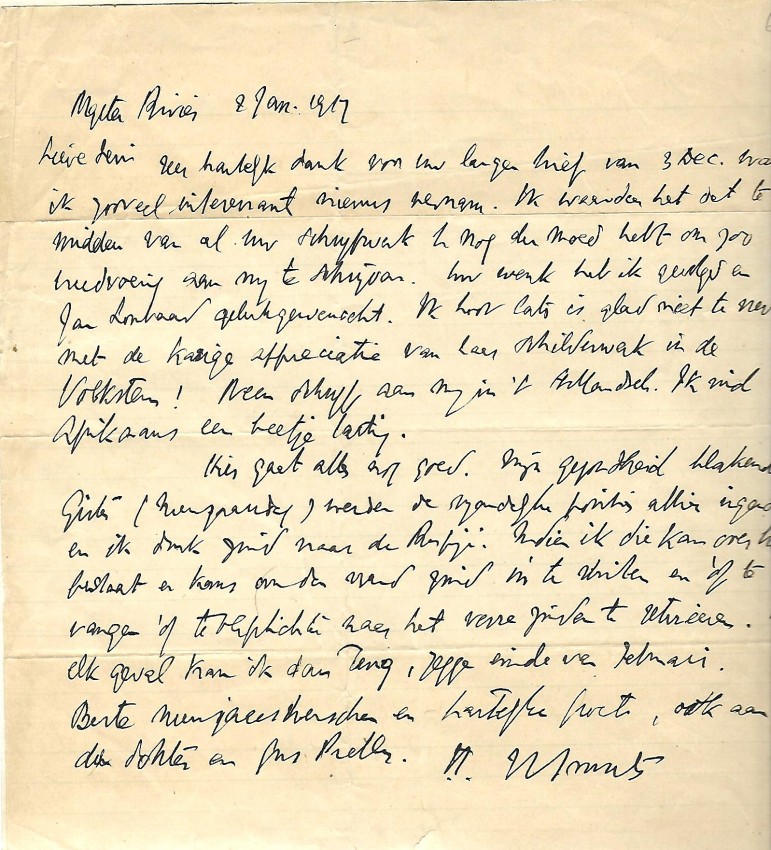 Mgeta Rivier 2 Jan. 1917
Lieve Levi Zeer hartelijk dank voor uw langen brief van 3 Dec.
ik zooveel interessant nieuws vernam. Ik waardeer het dat te
midden van al uw schrijfwerk U nog den moed hebt om zoo
breedvoerig aan mij te schrijven. Uw wenk heb ik gevolgd en
Jan gelukgewenscht. Ik hoor is glad niet te
met de karige appreciatie van haar schilderwerk in de
Volkstem! Neen schrijf aan mij in 't Hollandsch. Ik vind
Afrikaans een beetje lastig.
Hier gaat alles nog goed. Mijn gezondheid blakend.
Gister (Nieuwjaarsdag) werden de vyandelijke posities alhier
en ik druk zuid naar de Rufiji. Indien ik die kan over
bestaat er kans om den vyand zuid in te sluiten en of te
vangen of te verplichten naar het verre zuiden te retireeren.
elk geval kan ik dan terug, zegge einde van Februari.
Beste nieuwjaarswenschen en hartelijke groete, ook aan
den dokter en Gus Preller. tt. JC Smuts